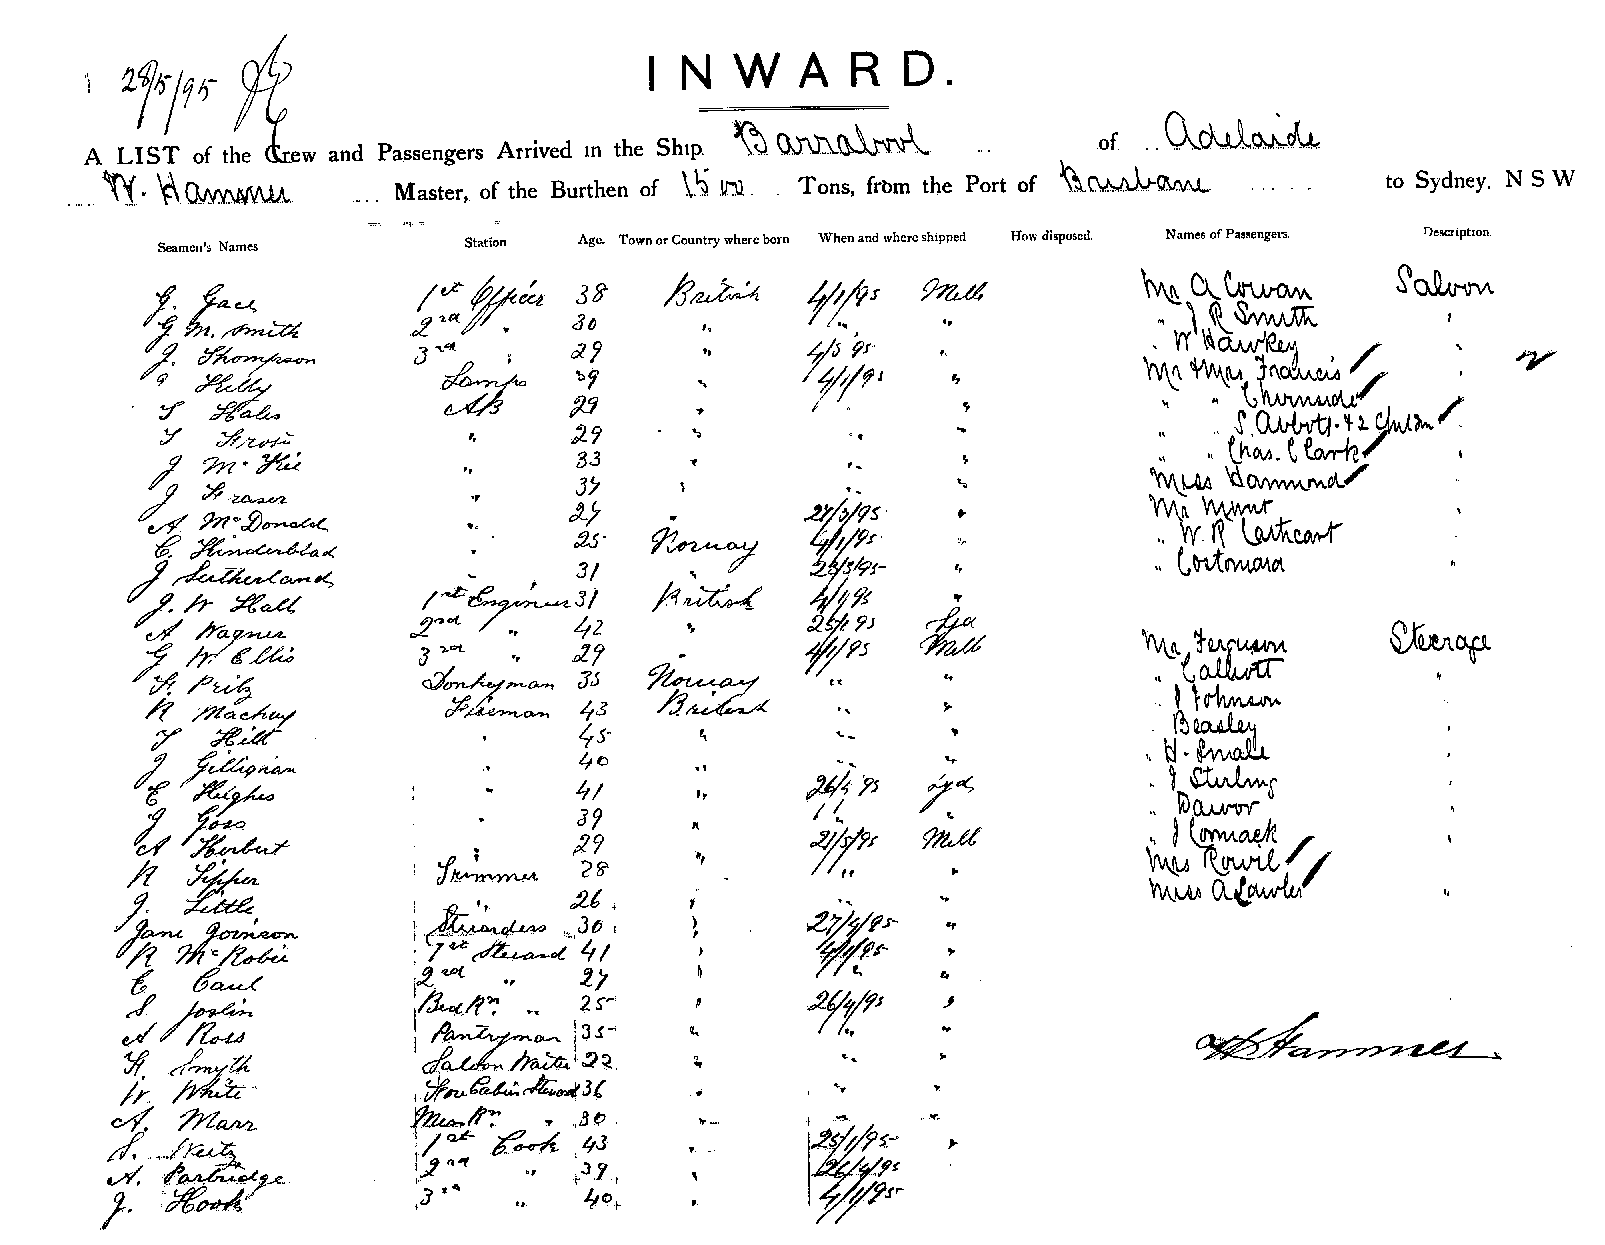 28/5/95
INWARD.
A LIST of the Crew and Passengers Arrived in the Ship Barrabool of Adelaide
W. Hammer Master, of the Burthen of Tons, from the Port of Brisbane to Sydney. N S W
Seamen's Names Station Age. Town or Country where born When and where shipped How disposed. Names of Passengers. Description.
G. 1st Officer 38 British 4/1/95 Melb Mr A Cowan Saloon
G M. Smith 2nd " 30 " " " " J R Smith "
J. Thompson 3rd " 29 " " " W Hawkey "
Lamps 39 " 4/1/95 " Mr & Mrs Francis "
T Hales AB 29 " " " " Chirnside
T Frost " 29 " " " " S. Abbott + 2 "
J McKie " 33 " " " " " Chas. Clark "
J Fraser " " " " Miss Hammond
A McDonald " " " Mr Munt "
C. Hinderblad " 25 Norway 4/1/95 " " W. R Cathcart
J Sutherland " 31 " " " "
J. W Hall 1st Engineer 31 British "
A Wagner 2nd " 42 "
G W. Ellis 3rd " 29 " 4/1/95 Melb Mr Ferguson Steerage
Donkeyman 35 Norway " " " "
R Mackay Fireman 43 British " " " J Johnson "
T Hill " 45 " " " Beasley "
J " 40 " " " " H. Smale "
E Hughes " 41 " Syd " J Stirling "
J Goss " 39 " " " "
A Herbert " 29 " Melb " J Cormack "
R Tipper Trimmer 28 " " " Mrs
J. Little " 26 " " Miss A Lawler "
Jane 30 " 27/4/95 "
R McRobie 1st 41 " 4/1/95 "
E Caul 2nd " 27 " " "
S. Joslin Bed Rm. " 25 " 26/4/95 "
A Ross Pantryman 35 " " " Hammer
H. Smyth Saloon Waiter 22 " " "
W. White Fore Cabin 36 " " "
A. Marr Mess Rm. " 30 " " "
S. 1st Cook 43 " 25/1/95 "
A. Partridge 2nd " 39 " 26/4/95
J. Hook 3rd " 40 " 4/1/95